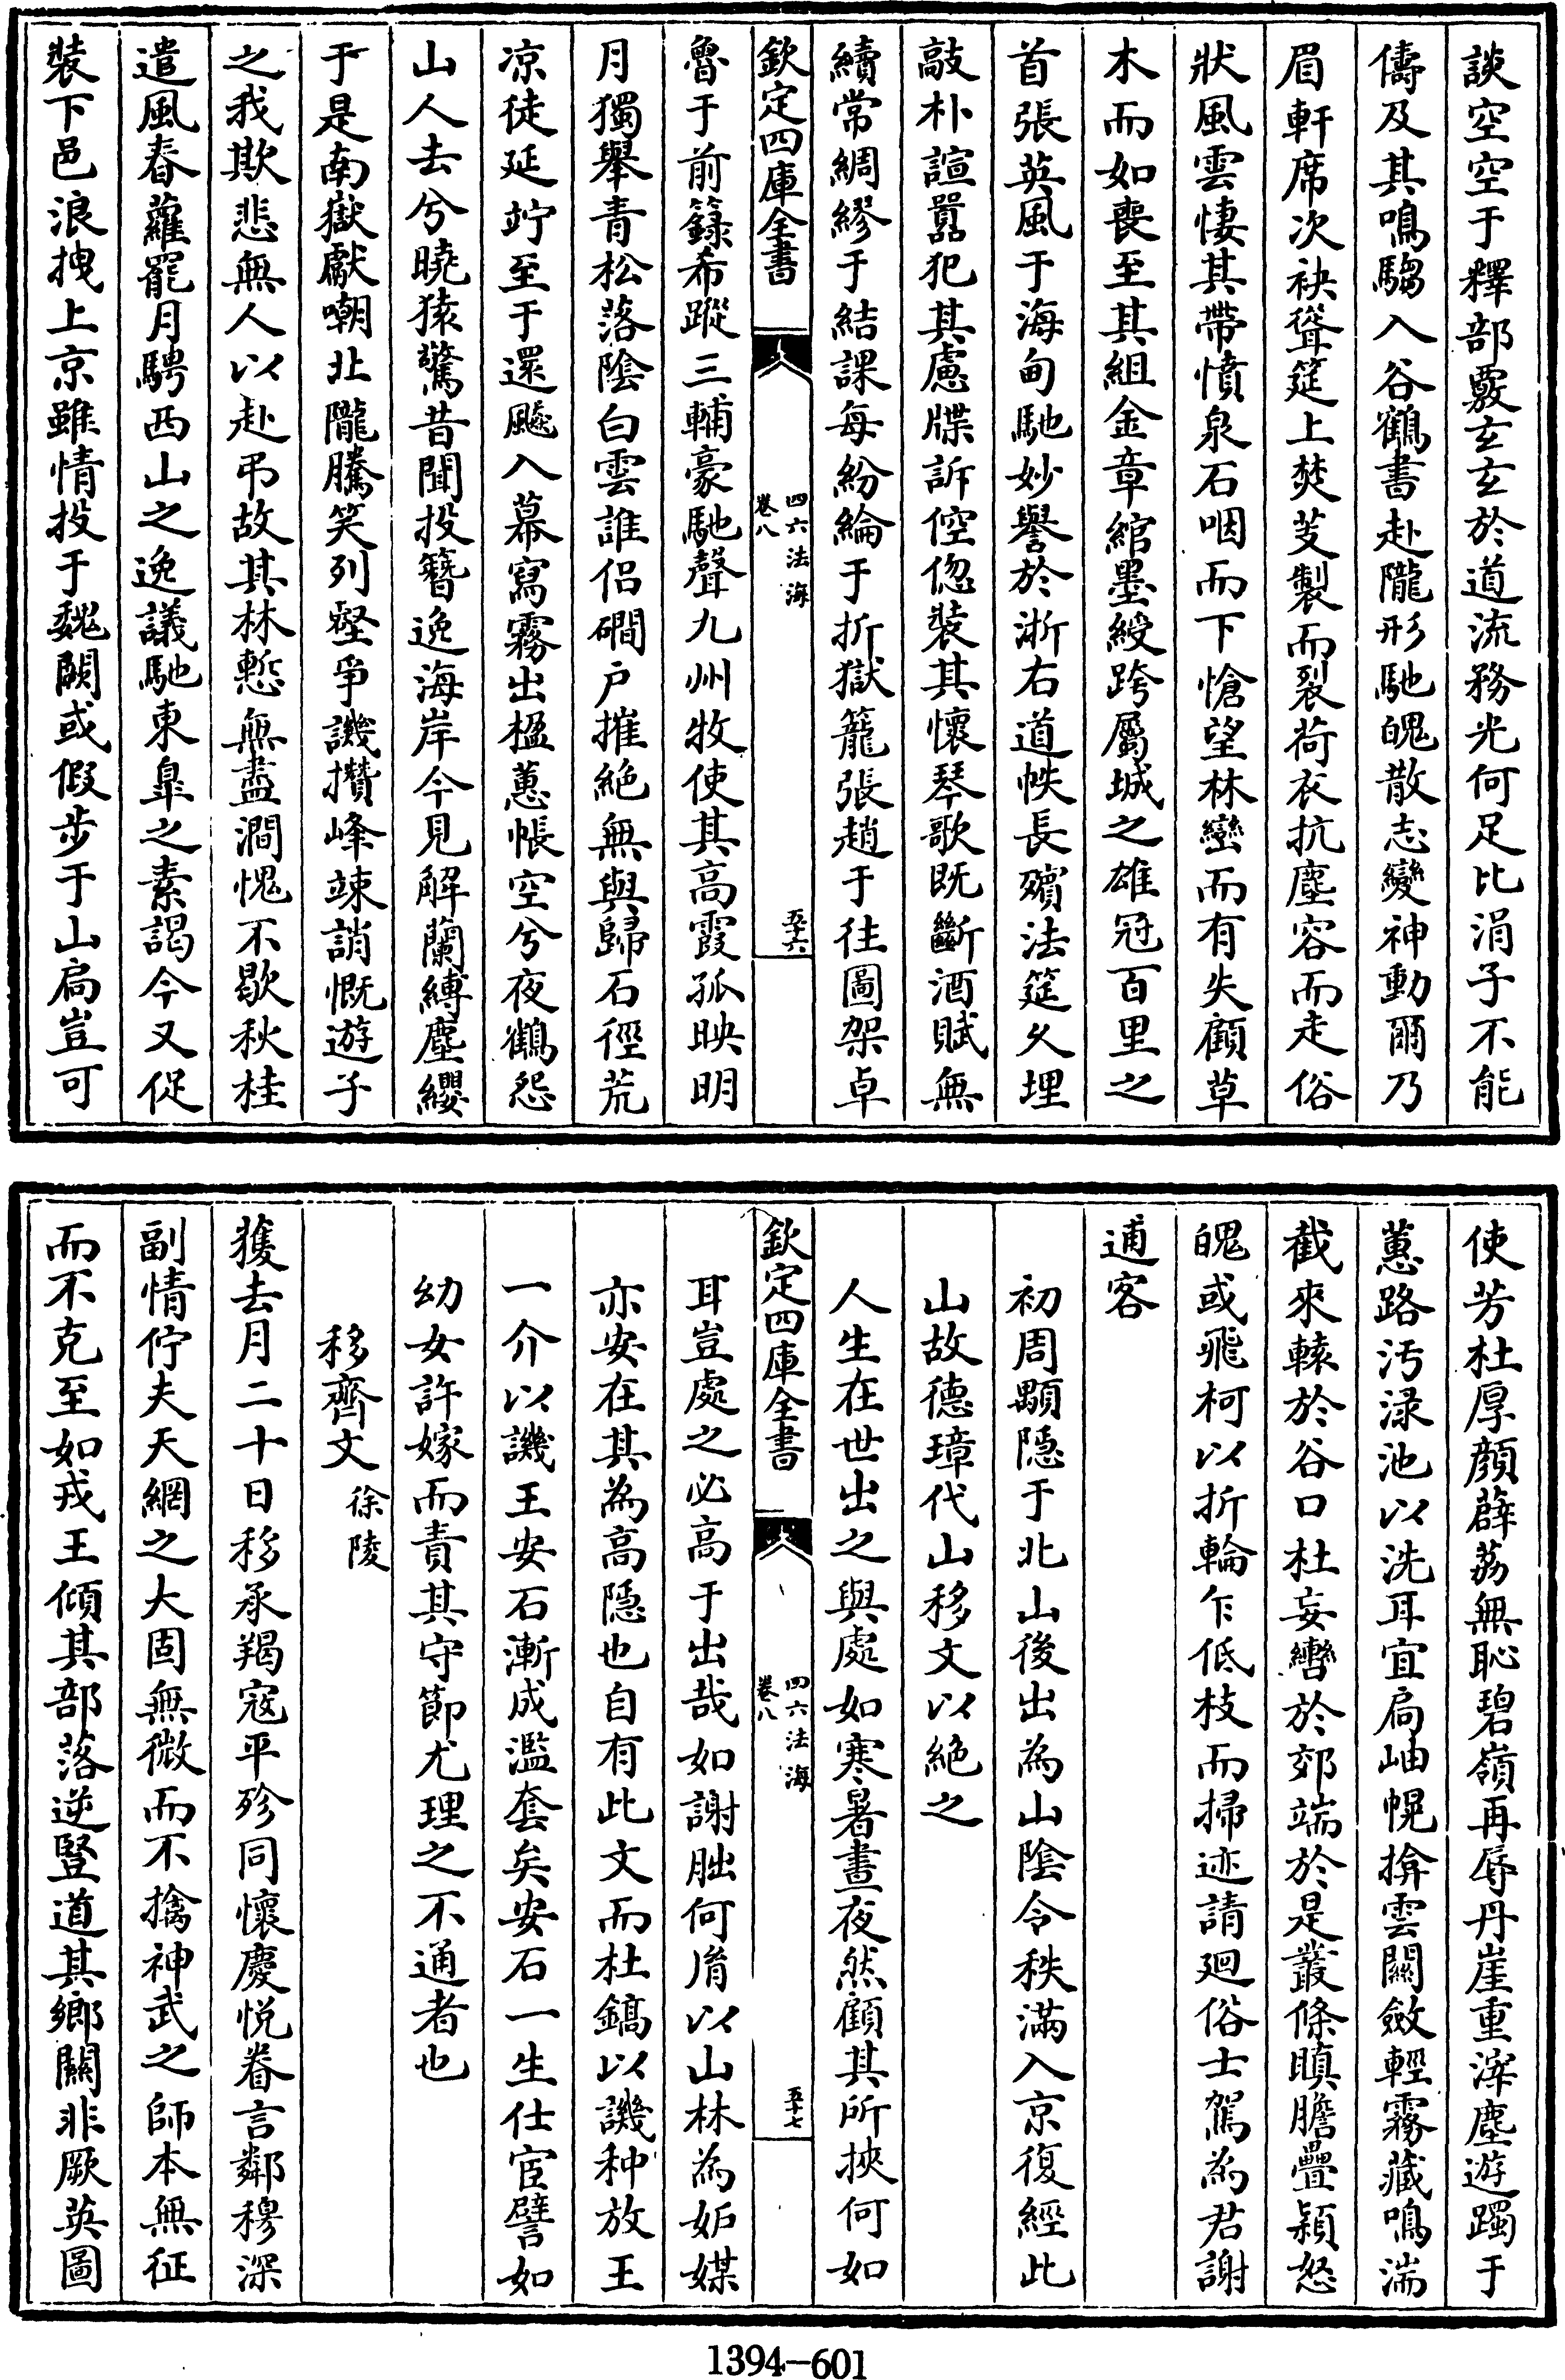 談空空于釋部覈玄玄於道流務光何足比涓子不能
儔及其鳴騶入谷鶴書赴隴形馳魄散志變神動爾乃
眉軒席次袂聳筵上焚芰製而裂荷衣抗塵容而走俗
狀風雲悽其帶憤泉石咽而下愴望林巒而有失顧草
木而如喪至其組金章綰墨綬跨屬城之雄冠百里之
首張英風于海甸馳妙譽於浙右道帙長殯法筵久埋
敲朴諠囂犯其慮牒訴倥偬裝其懷琴歌既斷酒賦無
續常綢繆于結課每紛綸于折獄籠張趙于往圖架卓
欽定四庫全書
四六法海
卷八
五十六
魯于前籙希蹤三輔豪馳聲九州牧使其高霞孤映明
月獨舉青松落陰白雲誰侶磵户摧絶無與歸石徑荒
凉徒延竚至于還飈入幕寫霧出楹蕙帳空兮夜鶴怨
山人去兮曉猿驚昔聞投簪逸海岸今見解蘭縛塵纓
于是南嶽獻嘲北隴騰笑列壑爭譏攢峰竦誚慨遊子
之我欺悲無人以赴弔故其林慙無盡澗愧不歇秋桂
遣風春蘿罷月騁西山之逸議馳東臯之素謁今又促
裝下邑浪拽上京雖情投于魏闕或假步于山扃豈可
使芳杜厚顔薜荔無恥碧嶺再辱丹崖重滓塵遊躅于
蕙路汚渌池以洗耳宜扃岫幌揜雲關斂輕霧藏鳴湍
截來轅於谷口杜妄轡於郊端於是叢條瞋膽疊穎怒
魄或飛柯以折輪乍低枝而掃迹請廻俗士駕為君謝
逋客
初周顒隱于北山後出為山陰令秩滿入京復經此
山故德璋代山移文以絶之
人生在世出之與處如寒暑晝夜然顧其所挾何如
欽定四庫全書
四六法海
卷八
五十七
耳豈處之必高于出哉如謝朏何胤以山林為妬媒
亦安在其為高隱也自有此文而杜鎬以譏种放王
一介以譏王安石漸成濫套矣安石一生仕宦譬如
幼女許嫁而責其守節尤理之不通者也
移齊文 徐陵
獲去月二十日移承羯寇平殄同懷慶悦眷言鄰穆深
副情佇夫天網之大固無微而不擒神武之師本無征
而不克至如戎王傾其部落逆豎道其鄉關非厥英圖
1394-601